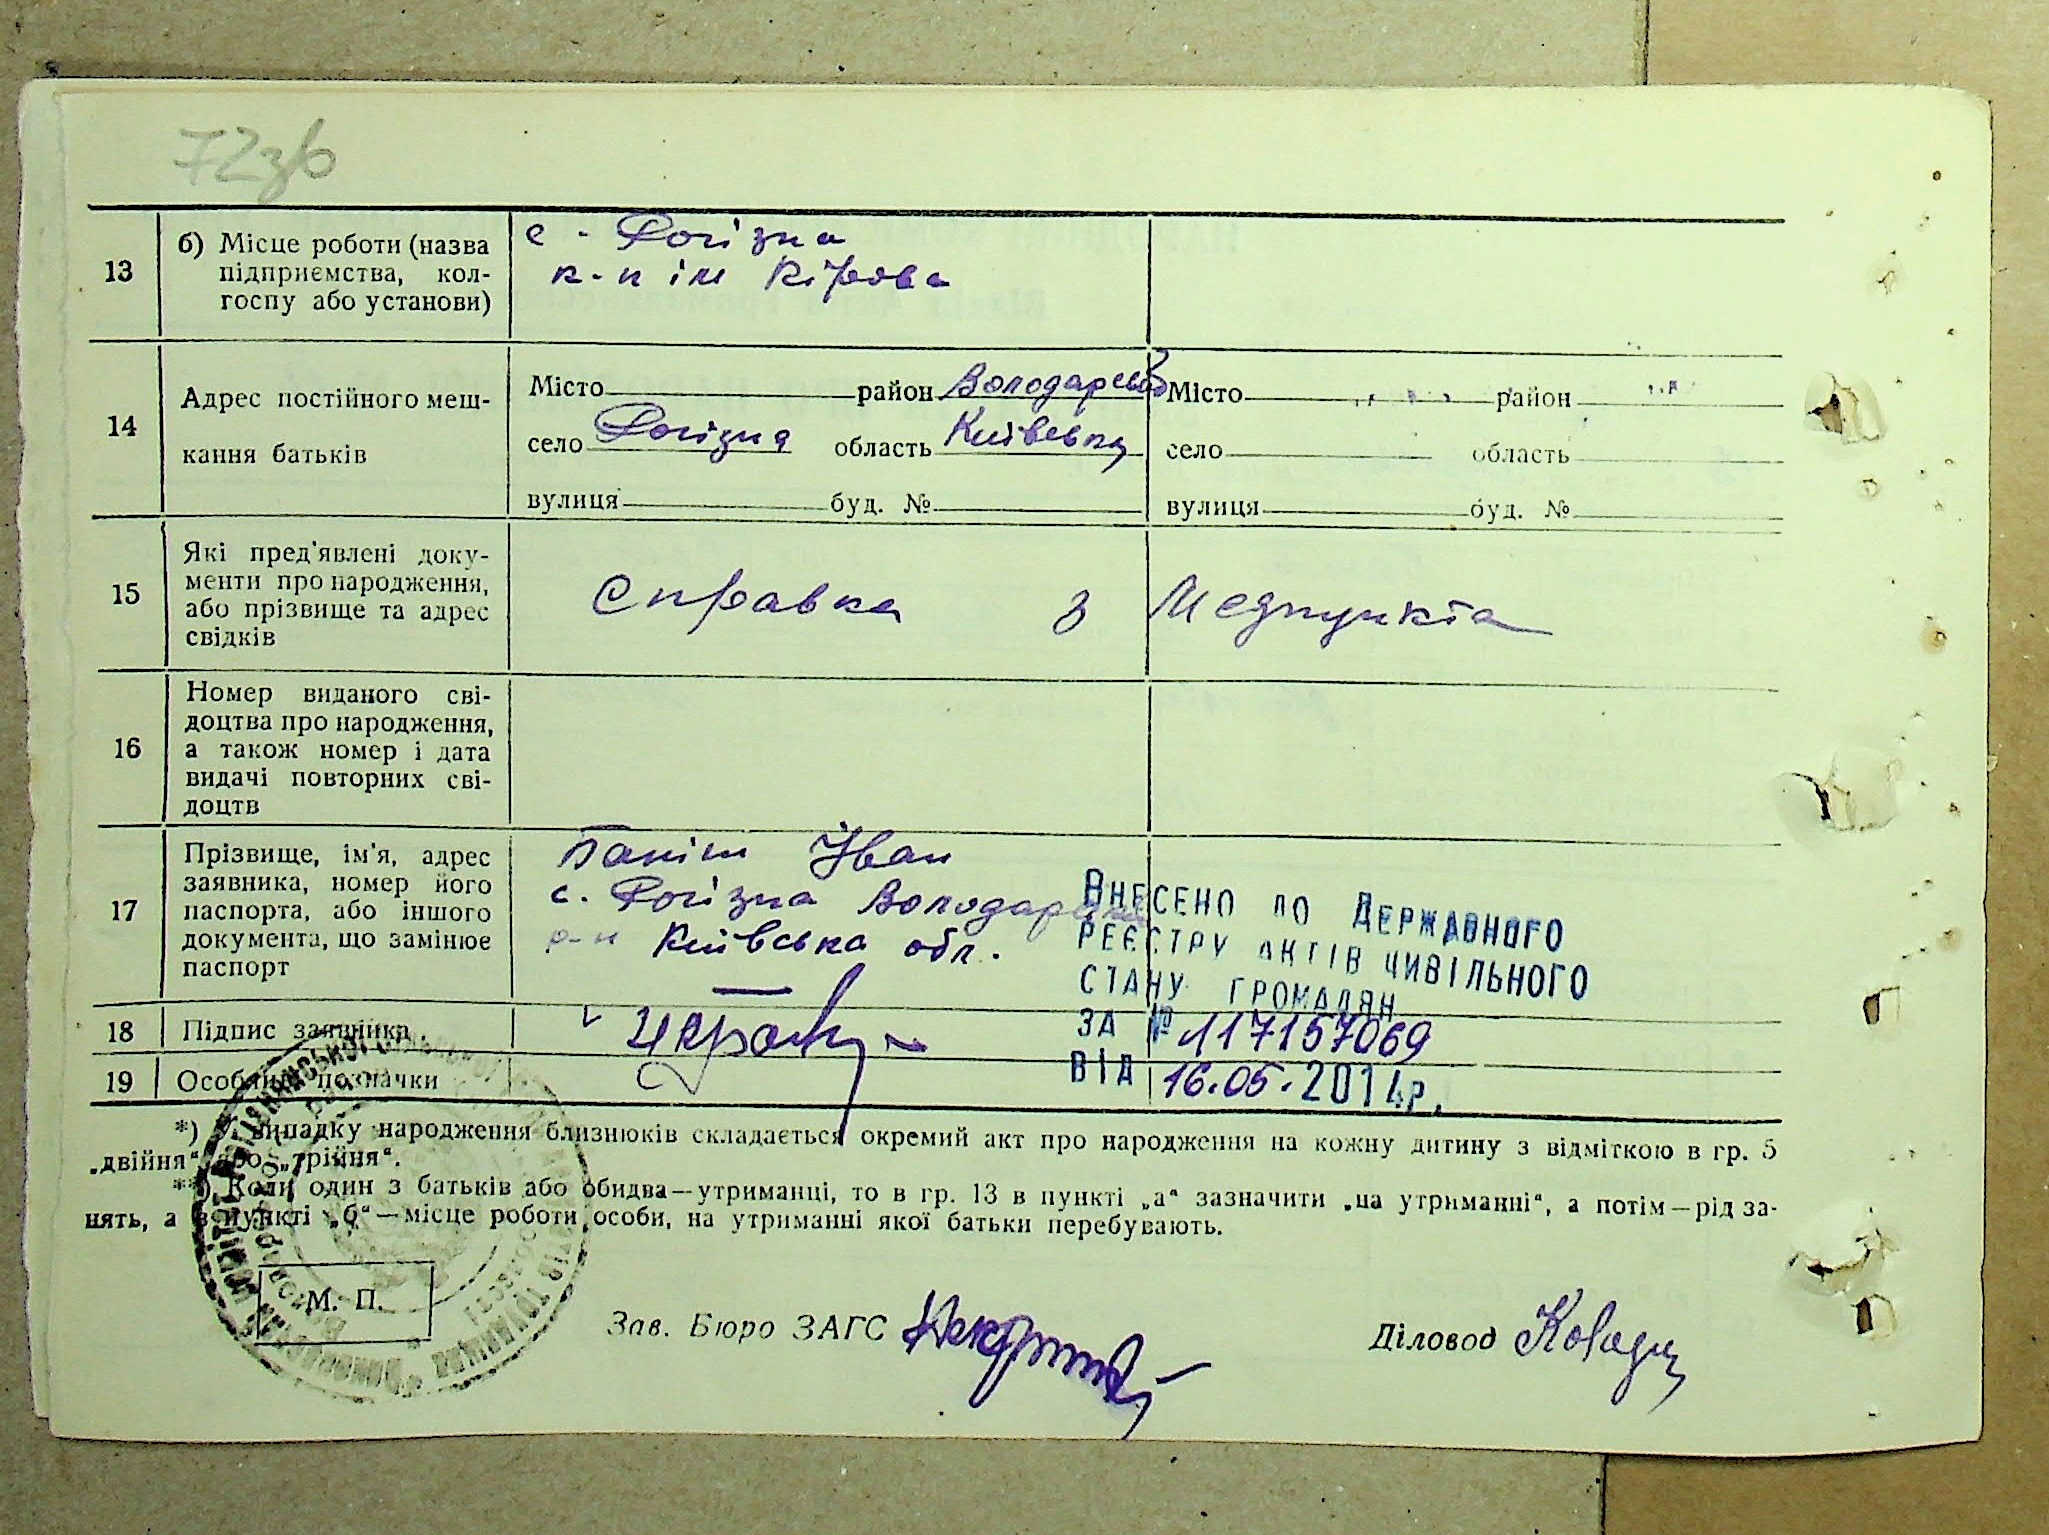 72зв
13
б) Місце роботи (назва
підприємства, кол-
госпу або установи)
с. Рогізна
к-п ім Кірова
14
Адрес постійного меш-
кання батьків
Місто район Володарський
село Рогізна область Київська
вулиця буд. №
Місто район
село область
вулиця буд. №
15
Які пред'явлені доку-
менти про народження,
або прізвище та адрес
свідків
Справка з Медпункта
16
Номер виданого сві-
доцтва про народження,
а також номер і дата
видачі повторних сві-
доцтв
17
Прізвище, ім'я, адрес
заявника, номер його
паспорта, або іншого
документа, що замінює
паспорт
Іван
с. Рогізна Володарський
р-н Київська обл.
Внесено до Державного
реєстру актів цивільного
стану громадян
за № 117157069
від 16.05.2014р.
18
Підпис заявника
19
Особливі позначки
*) У випадку народження близнюків складається окремий акт про народження на кожну дитину з відміткою в гр. 5
„двійня“ або „трійня“.
**) Коли один з батьків або обидва—утриманці, то в гр. 13 в пункті „а“ зазначити „на утриманні“, а потім—рід за-
нять, а в пункті „б“—місце роботи особи, на утриманні якої батьки перебувають.
М. П.
Зав. Бюро ЗАГС
Діловод